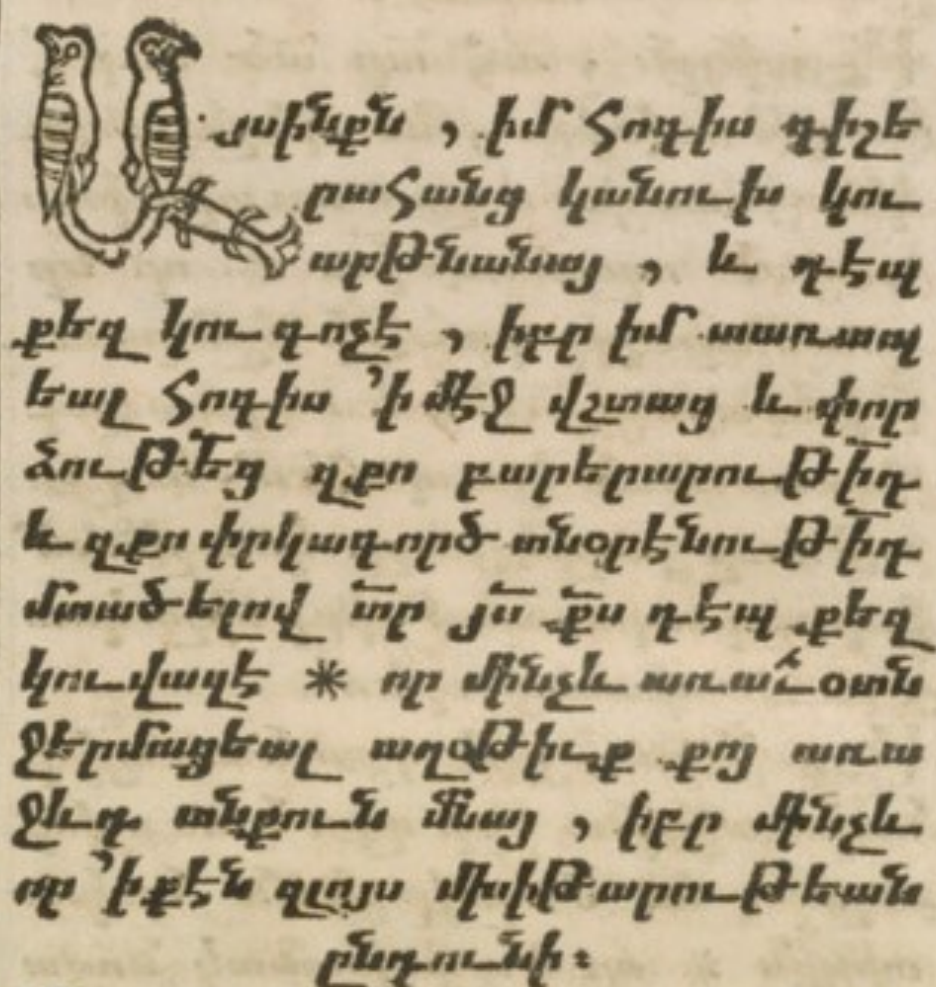 Այսինքն , իմ հոգիս գիշե
րահանց կանուխ կու
արթննանայ , և դէպ
քեզ կու գոչէ , իբր իմ տառապ
եալ հոգիս ՚ի մէջ վշտաց և փոր
ձութե՞ց զքո բարերարութիդ
և զքո փրկագործ տնօրէնութիդ
մտածելով տր յս քս դէպ քեզ
կու վազէ * որ մինչև առաւօտն
ջերմացեալ աղօթիւք քոյ առա
ջևդ անքուն մնայ , իբր մինչև
որ ՚ի քէն զլոյս մխիթարութեան
ընդունի։